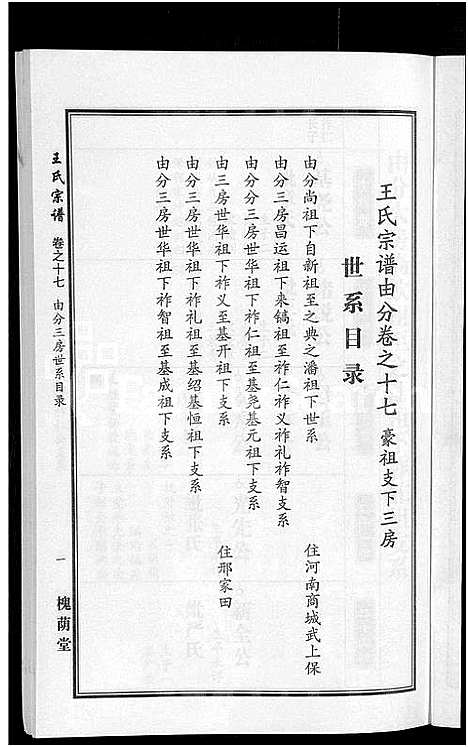 王氏宗谱由分卷之十七 豪祖支下三房
世系目录
由分尚祖下自新祖至之典之潘祖下世系 住河南商城武上保
由分三房昌运祖下来镐祖至祚仁祚义祚礼祚智支系
由分分三房世华祖下祚仁祖至基尧基元祖下支系
由三房世华祖下祚义至基开祖下支系 住邢家田
由分三房世华祖下祚礼祖至基绍基恒祖下支系
由分三房世华祖下祚智祖至基成祖下支系
王氏宗谱 卷之十七 由分三房世系目录 一 槐荫堂